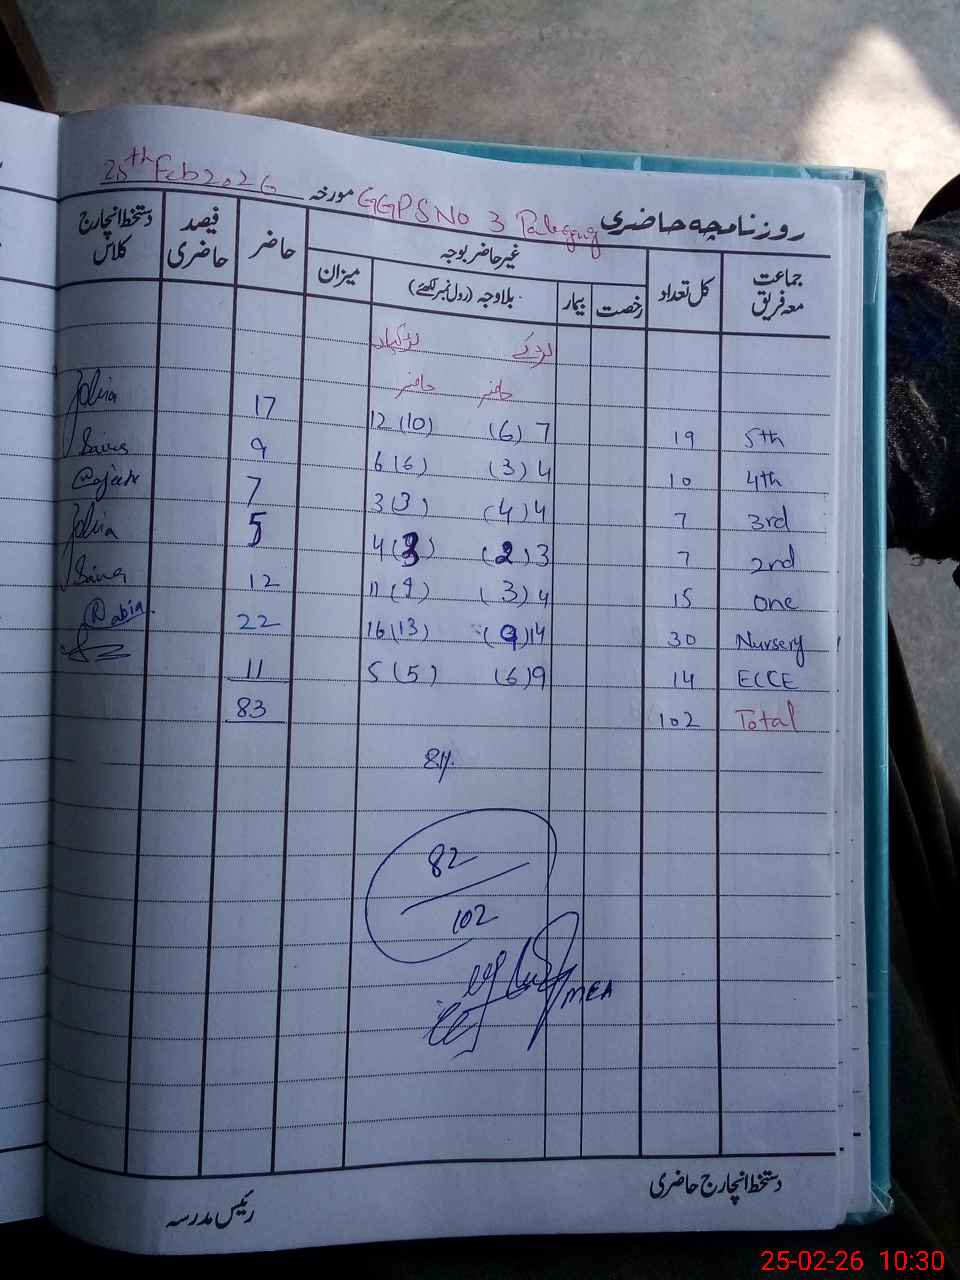 25th Feb 2026 مورخہ GGPS No 3 روزنامچہ حاضری
جماعت معہ فریق
کل تعداد
غیر حاضر بوجہ
رخصت
بیمار
بلاوجہ (رول نمبر لکھئے)
میزان
حاضر
فیصد حاضری
دستخط انچارج کلاس
لڑکے لڑکیاں
حاضر حاضر
5th 19 7 (6) 12 (10) 17
4th 10 4 (3) 6 (6) 9
3rd 7 4 (4) 3 (3) 7
2nd 7 3 (2) 4 (3) 5
one 15 4 (3) 11 (9) 12
Nursery 30 14 (9) 16 (13) 22 Rabia
ECCE 14 9 (6) 5 (5) 11
Total 102 83
81%
82
102
MEA
دستخط انچارج حاضری
رئیس مدرسہ
25-02-26 10:30